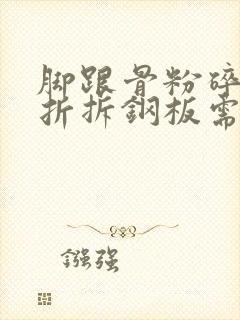 脚跟骨粉碎
折拆鋼板需
鏹强